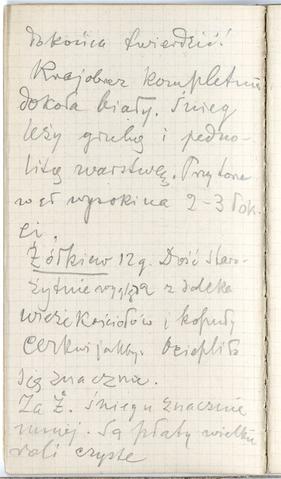 do końca twierdzić!
Krajobraz kompletnie
dokoła biały. Śnieg
leży grubą i jedno-
litą warstwą. Przytem
wał wysoki na 2-3 łok-
ci.
Żółkiew 12 g. Dość staro-
żytnie wygląda z daleka
wieże kościołów i kopuły
cerkwi jakby. Ociepliło
się znacznie.
Za Ż. śniegu znacznie
mniej. Są płaty wielkie
roli czyste